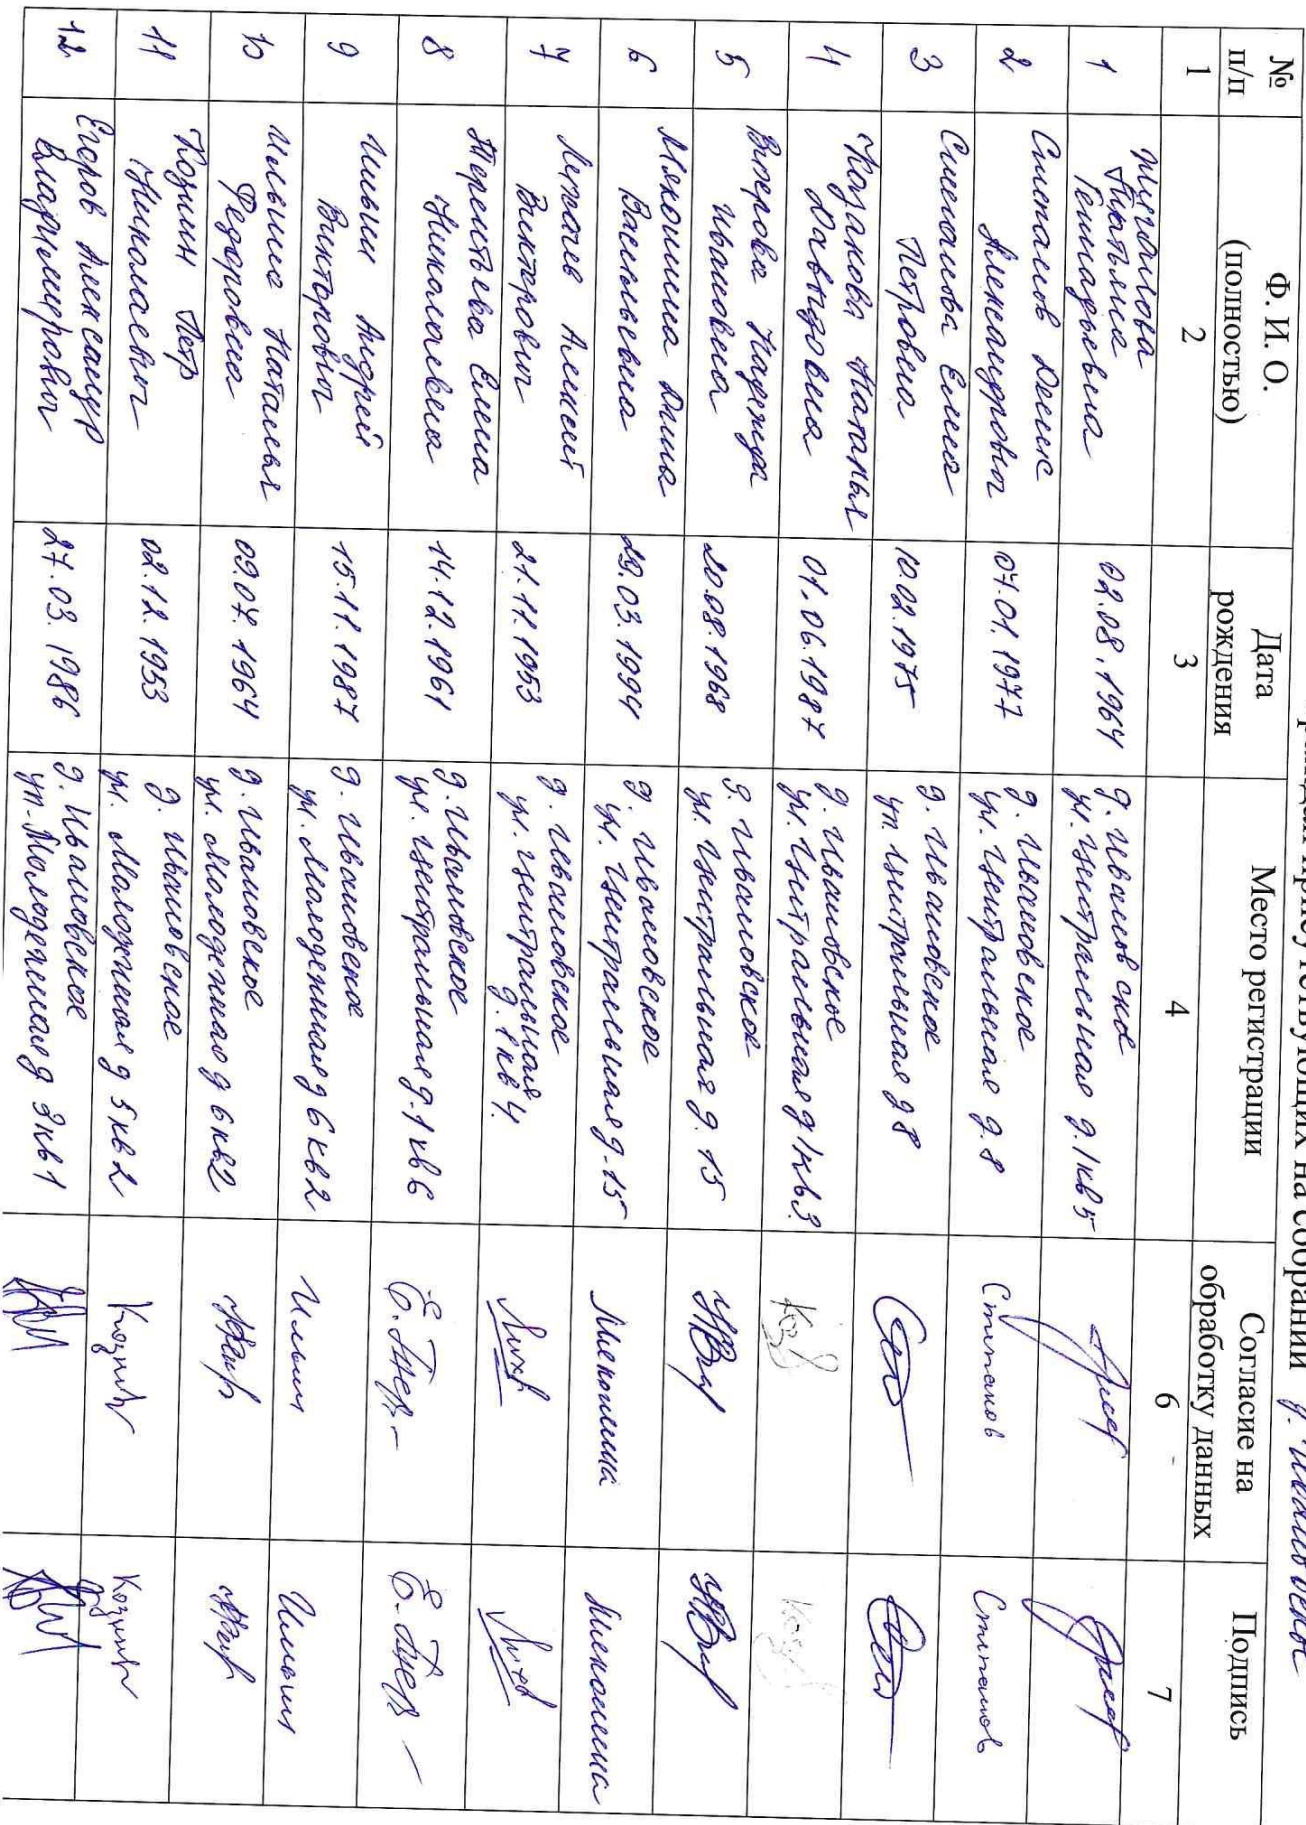 присутствующих на собрании д. Ивановское
№ п/п
Ф. И. О. (полностью)
Дата рождения
Место регистрации
Согласие на обработку данных
Подпись
1 2 3 4 6 7
1
Татьяна
Геннадьевна
02.08.1964
д. Ивановское
ул. Центральная д. 1 кв 5
2
Степанов Денис
Александрович
07.01.1977
д. Ивановское
ул. Центральная д. 8
Степанов
Степанов
3
Степанова Елена
Петровна
10.02.1975
д. Ивановское
ул. Центральная д 8
4
Козакова Наталья
Давыдовна
01.06.1987
д. Ивановское
ул. Центральная д 1 кв 3
5
Надежда
Ивановна
20.08.1968
д. Ивановское
ул. Центральная д. 15
6
Мякошина Анна
Васильевна
29.03.1994
д. Ивановское
ул. Центральная д. 15
7
Алексей
Викторович
21.11.1953
д. Ивановское
ул. Центральная
д. 1 кв 4.
8
Терентьева Елена
Николаевна
14.12.1961
д. Ивановское
ул. Центральная д. 1 кв 6
9
Ильин Андрей
Викторович
15.11.1987
д. Ивановское
ул. Молодежная д 6 кв 2
Ильин
Ильин
10
Ильина Наталья
Федоровна
09.07.1964
д. Ивановское
ул. Молодежная д 6 кв 2
11
Козин Петр
Николаевич
02.12.1953
д. Ивановское
ул. Молодежная д 5 кв 2
12
Егоров Александр
Владимирович
27.03.1986
д. Ивановское
ул. Молодежная д 3 кв 1